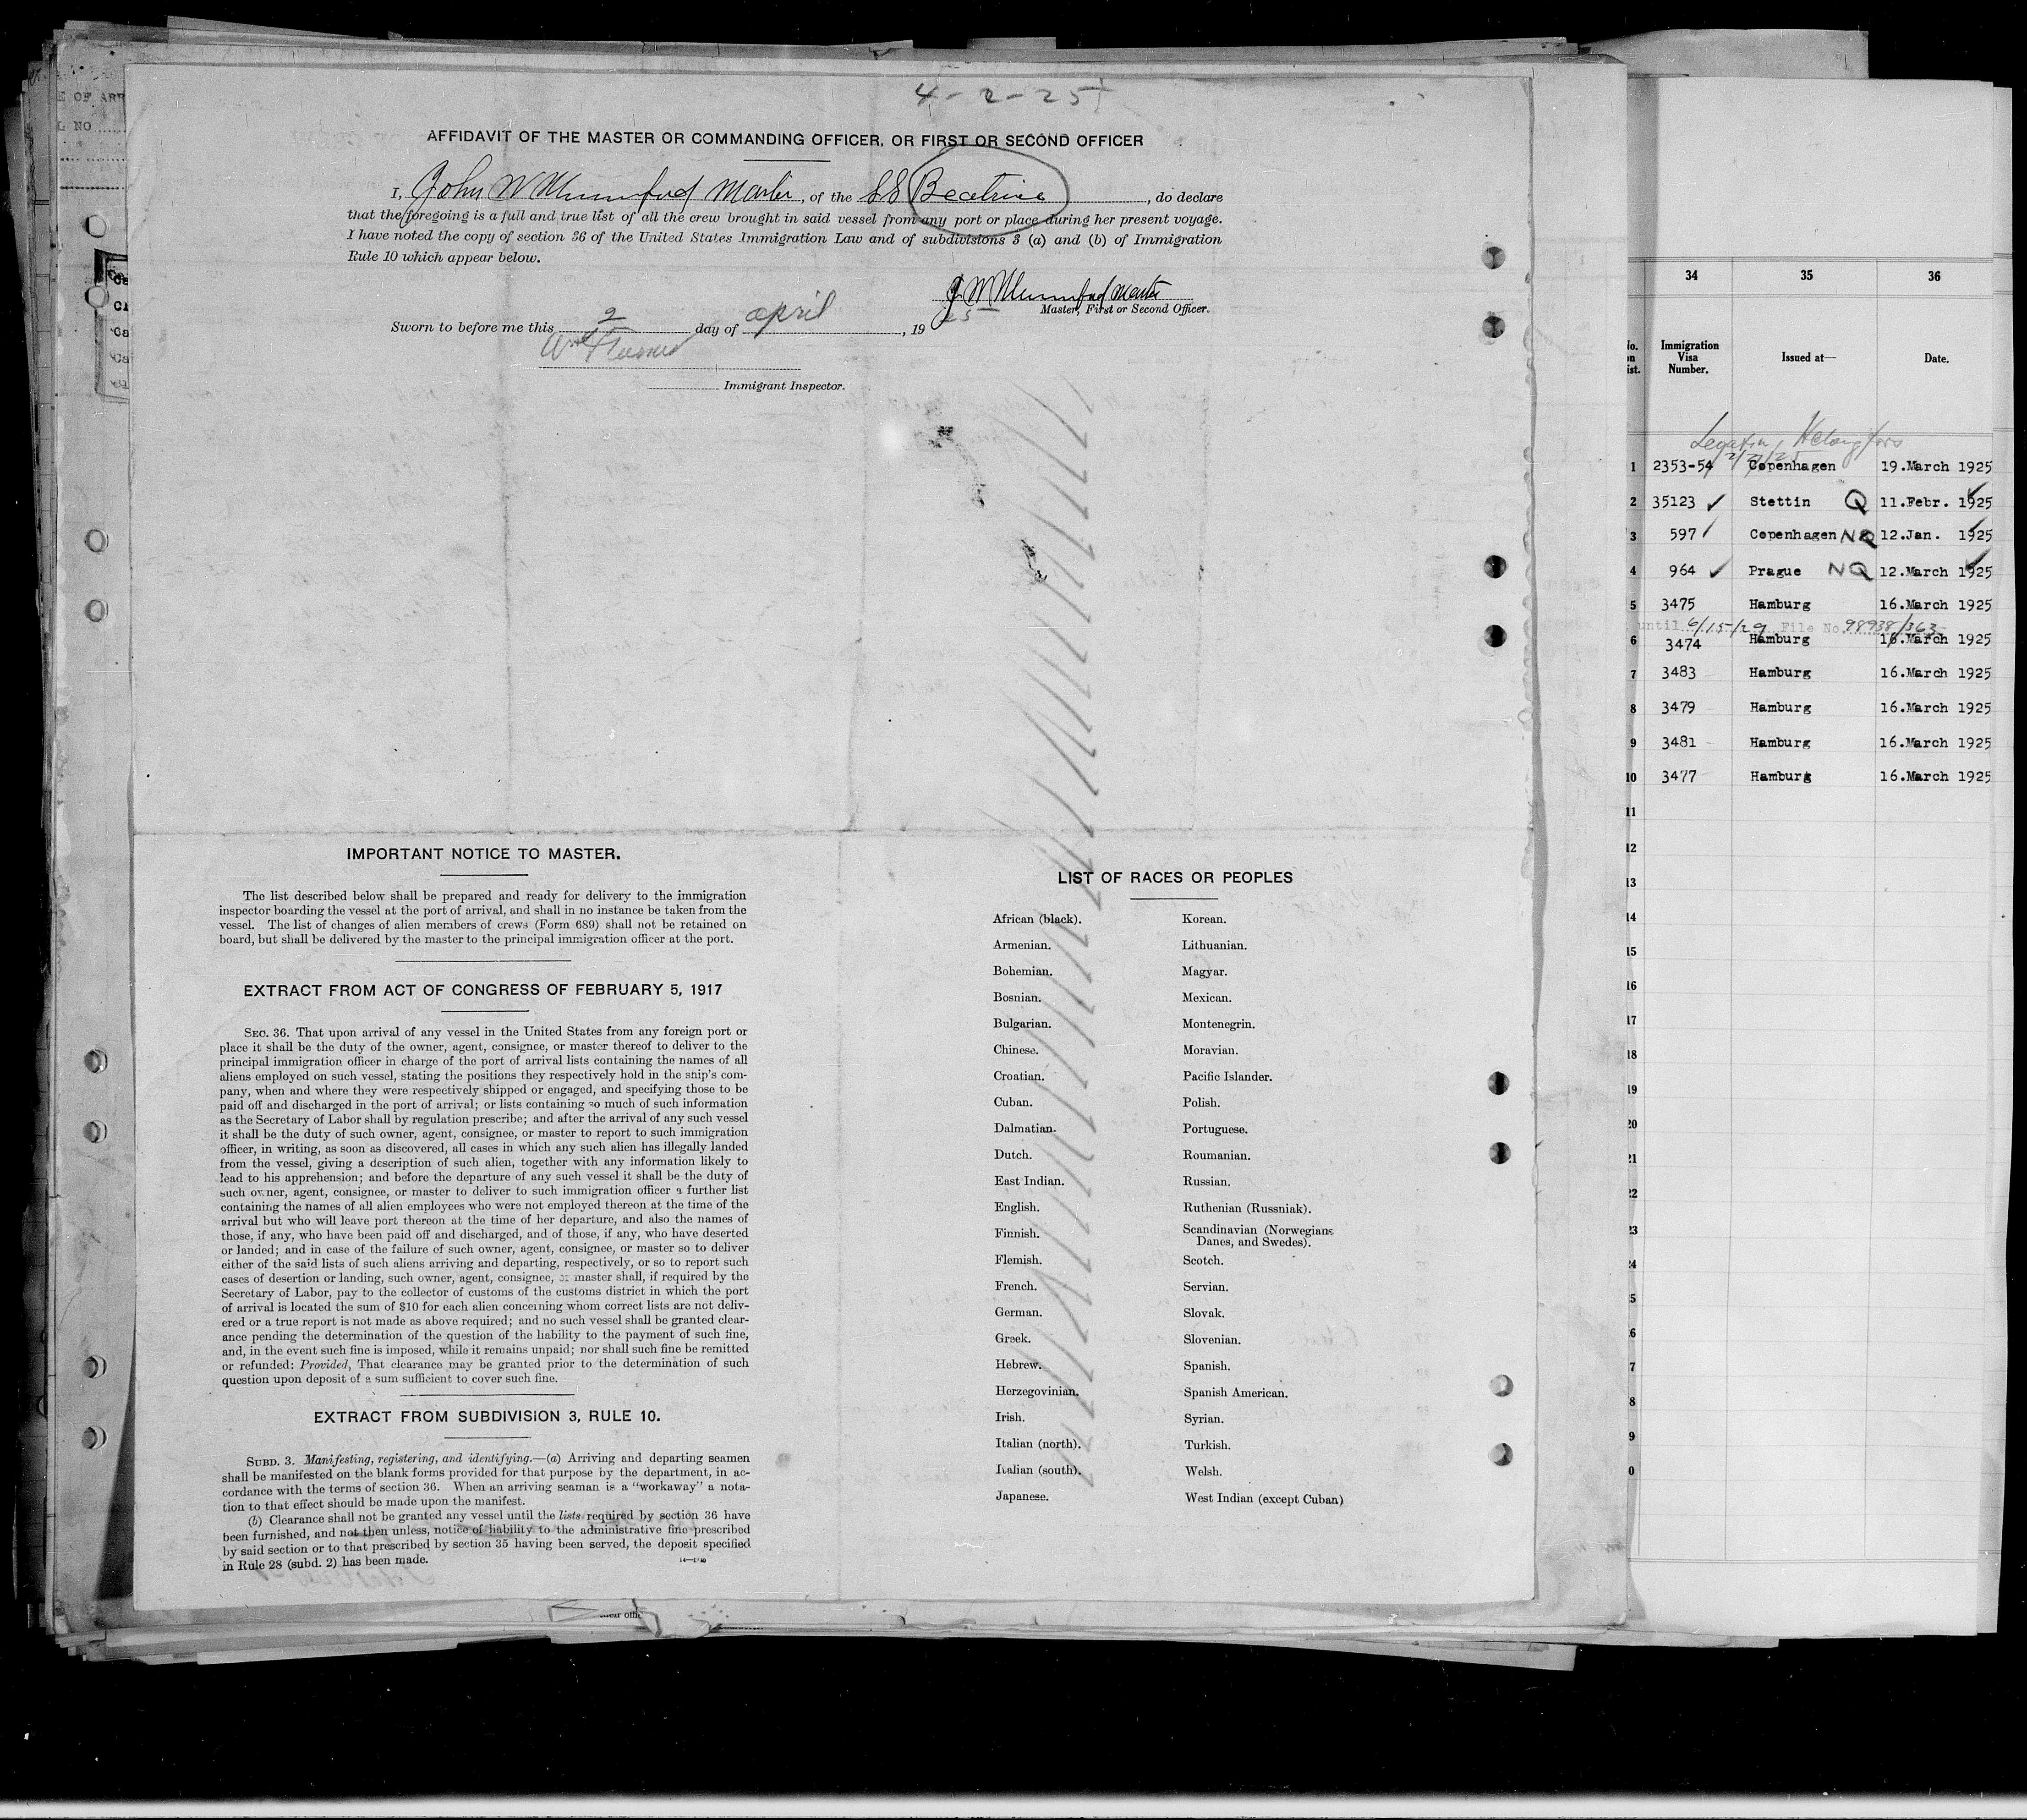 4-2-25
AFFIDAVIT OF THE MASTER OR COMMANDING OFFICER, OR FIRST OR SECOND OFFICER
I, John W Mumford Master, of the SS Beatrice, do declare
that the foregoing is a full and true list of all the crew brought in said vessel from any port or place during her present voyage.
I have noted the copy of section 36 of the United States Immigration Law and of subdivisions 3 (a) and (b) of Immigration
Rule 10 which appear below.
J W Mumford Master
Master, First or Second Officer.
Sworn to before me this 2 day of april, 19 25
Wm
Immigrant Inspector.
IMPORTANT NOTICE TO MASTER.
The list described below shall be prepared and ready for delivery to the immigration
inspector boarding the vessel at the port of arrival, and shall in no instance be taken from the
vessel. The list of changes of alien members of crews (Form 689) shall not be retained on
board, but shall be delivered by the master to the principal immigration officer at the port.
EXTRACT FROM ACT OF CONGRESS OF FEBRUARY 5, 1917
SEC. 36. That upon arrival of any vessel in the United States from any foreign port or
place it shall be the duty of the owner, agent, consignee, or master thereof to deliver to the
principal immigration officer in charge of the port of arrival lists containing the names of all
aliens employed on such vessel, stating the positions they respectively hold in the snip's com-
pany, when and where they were respectively shipped or engaged, and specifying those to be
paid off and discharged in the port of arrival; or lists containing so much of such information
as the Secretary of Labor shall by regulation prescribe; and after the arrival of any such vessel
it shall be the duty of such owner, agent, consignee, or master to report to such immigration
officer, in writing, as soon as discovered, all cases in which any such alien has illegally landed
from the vessel, giving a description of such alien, together with any information likely to
lead to his apprehension; and before the departure of any such vessel it shall be the duty of
such owner, agent, consignee, or master to deliver to such immigration officer a further list
containing the names of all alien employees who were not employed thereon at the time of the
arrival but who will leave port thereon at the time of her departure, and also the names of
those, if any, who have been paid off and discharged, and of those, if any, who have deserted
or landed; and in case of the failure of such owner, agent, consignee, or master so to deliver
either of the said lists of such aliens arriving and departing, respectively, or so to report such
cases of desertion or landing, such owner, agent, consignee, or master shall, if required by the
Secretary of Labor, pay to the collector of customs of the customs district in which the port
of arrival is located the sum of $10 for each alien concerning whom correct lists are not deliv-
ered or a true report is not made as above required; and no such vessel shall be granted clear-
ance pending the determination of the question of the liability to the payment of such fine,
and, in the event such fine is imposed, while it remains unpaid; nor shall such fine be remitted
or refunded: Provided, That clearance may be granted prior to the determination of such
question upon deposit of a sum sufficient to cover such fine.
EXTRACT FROM SUBDIVISION 3, RULE 10.
SUBD. 3. Manifesting, registering, and identifying.—(a) Arriving and departing seamen
shall be manifested on the blank forms provided for that purpose by the department, in ac-
cordance with the terms of section 36. When an arriving seaman is a "workaway" a nota-
tion to that effect should be made upon the manifest.
(b) Clearance shall not be granted any vessel until the lists required by section 36 have
been furnished, and not then unless, notice of liability to the administrative fine prescribed
by said section or to that prescribed by section 35 having been served, the deposit specified
in Rule 28 (subd. 2) has been made.
LIST OF RACES OR PEOPLES
African (black). Korean.
Armenian. Lithuanian.
Bohemian. Magyar.
Bosnian. Mexican.
Bulgarian. Montenegrin.
Chinese. Moravian.
Croatian. Pacific Islander.
Cuban. Polish.
Dalmatian. Portuguese.
Dutch. Roumanian.
East Indian. Russian.
English. Ruthenian (Russniak).
Finnish. Scandinavian (Norwegians,
Danes, and Swedes).
Flemish. Scotch.
French. Servian.
German. Slovak.
Greek. Slovenian.
Hebrew. Spanish.
Herzegovinian. Spanish American.
Irish. Syrian.
Italian (north). Turkish.
Italian (south). Welsh.
Japanese. West Indian (except Cuban)
34 35 36
Immigration Visa Number. Issued at— Date.
Legation, Helsingfors
2/27/25
1 2353-54 Copenhagen 19.March 1925
2 35123 ✓ Stettin Q 11.Febr. 1925
3 597 ✓ Copenhagen NQ 12.Jan. 1925
4 964 ✓ Prague NQ 12.March 1925
5 3475 Hamburg 16.March 1925
until 6/15/29 File No. 98938/363
6 3474 Hamburg 16.March 1925
7 3483 Hamburg 16.March 1925
8 3479 Hamburg 16.March 1925
9 3481 Hamburg 16.March 1925
10 3477 Hamburg 16.March 1925
11
12
13
14
15
16
17
18
19
20
21
22
23
24
25
6
7
8
9
0